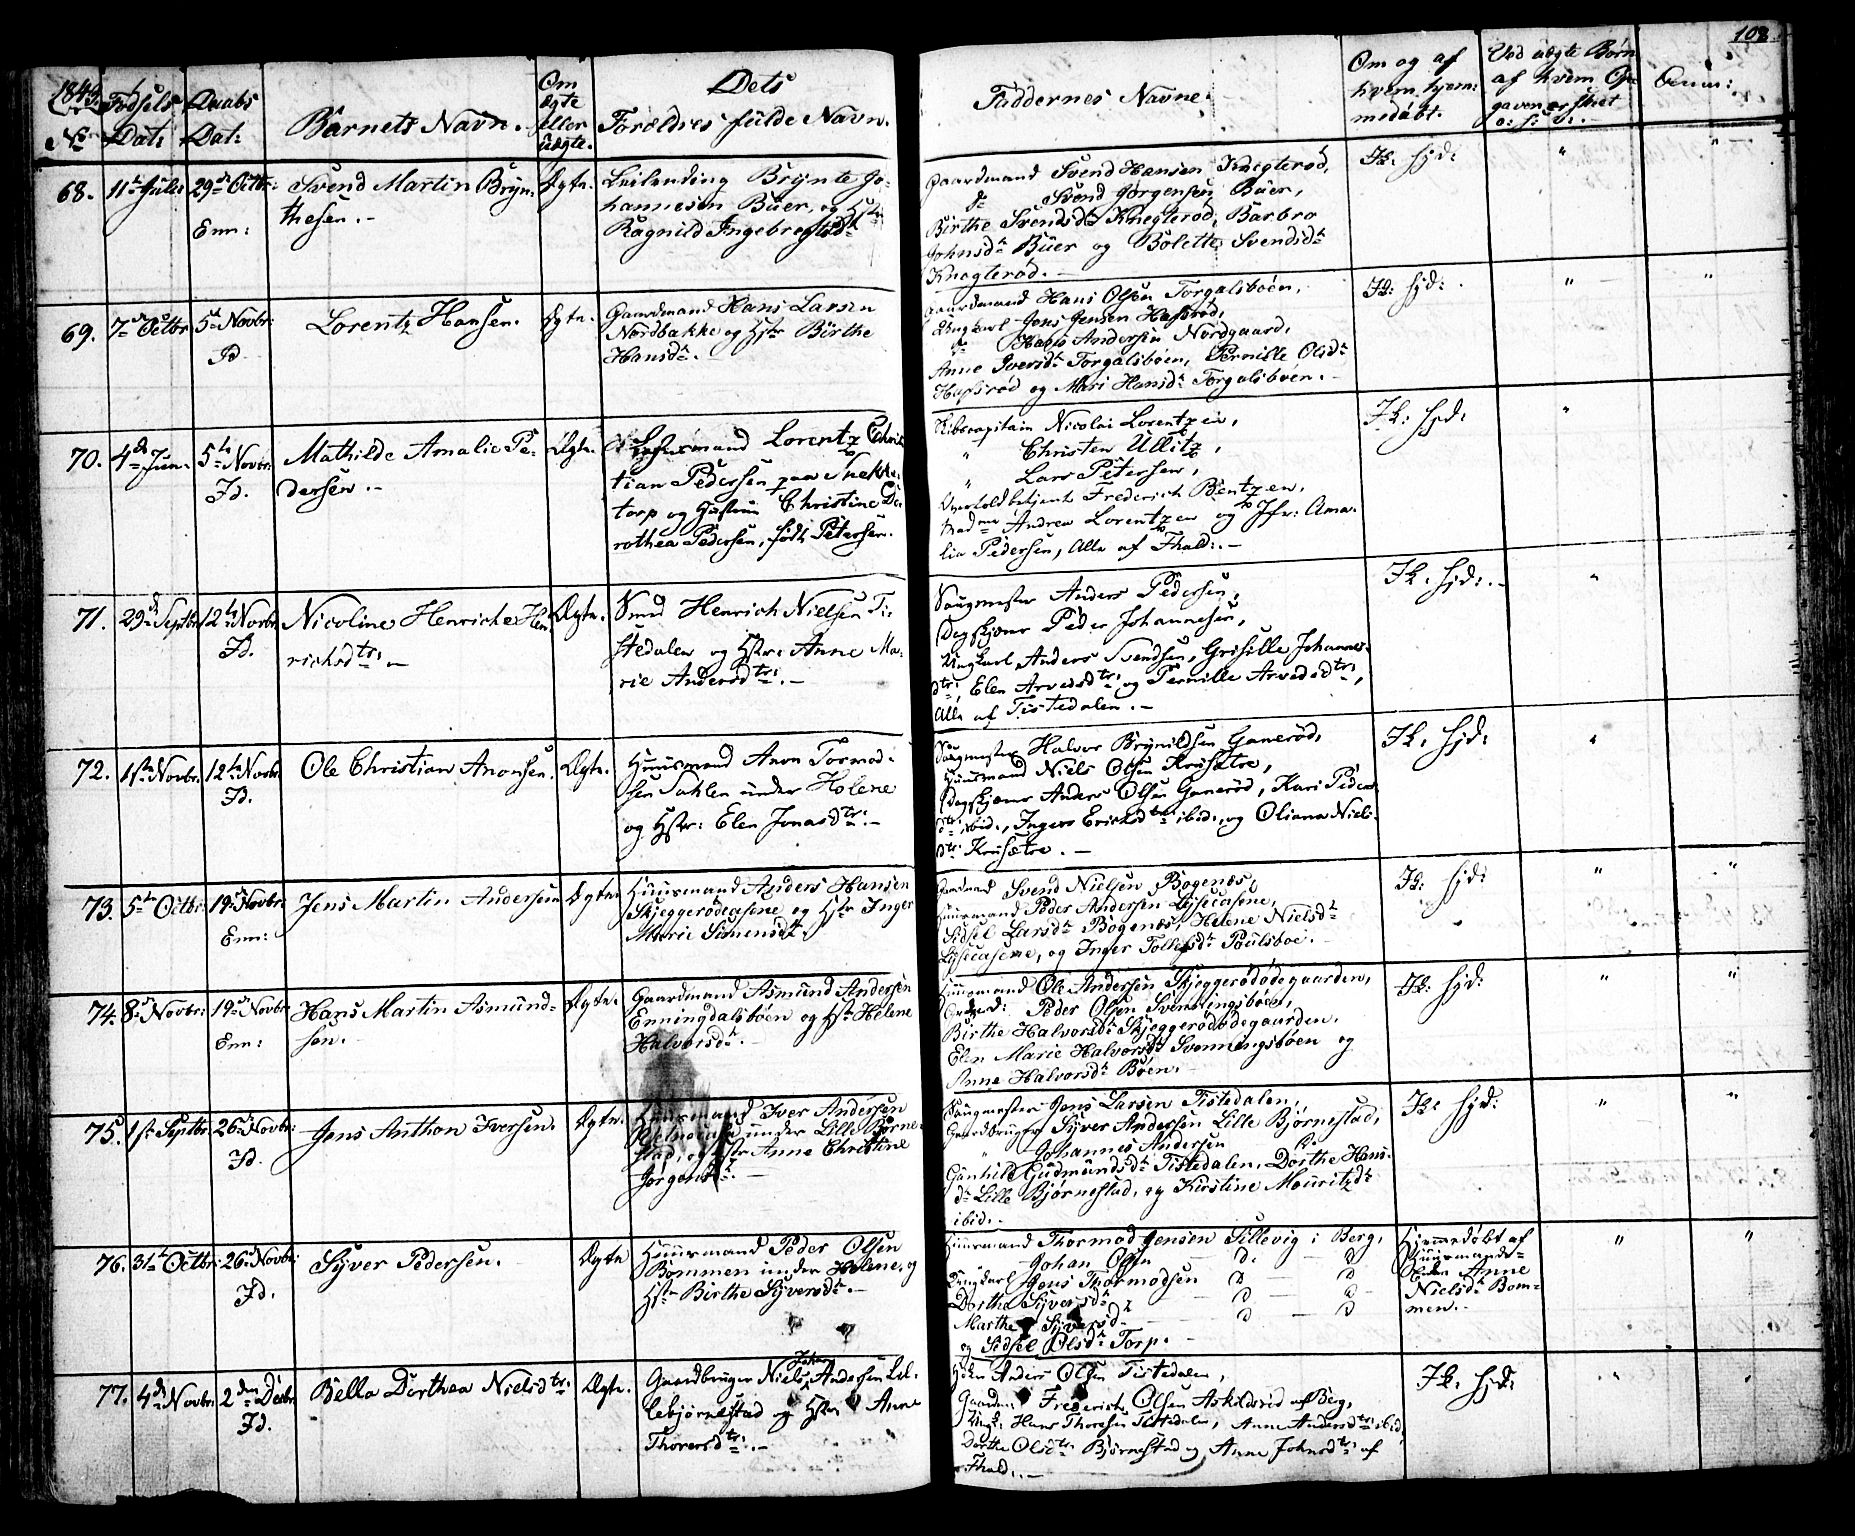 108
1843
No
Fødsels
Dat:
Daabs
Dat:
Barnets Navn.
Om
ægte
eller
uægte.
Dets
Forældres fulde Navn.
Faddernes Navne.
Om og af
hvem hjem:
medøbt.
Ved uægte Børn
af hvem Op-
gaven er skeet
Anm:
68. 11te Julii 29de Octbr:
Enn:
Svend Martin Bryn-
thesen.
Ægte.
Leilending Brynte Jo-
hannesen Büer, og Hstr
Ragnild Ingebregtsdtr
Gaardmand Svend Hansen Knegterød,
do Svend Jørgensen Büer,
Birthe Svendsdtr Knegterød, Barbro
Johnsdtr Büer og Bolette Svendsdtr
Knegterød.
Ik: hjd:
69. 7de Octbr 5te Novbr:
Id
Lorentz Hansen.
Ægte.
Gaardmand Hans Larsen
Nordbakke og Hstr Birthe
Hansdtr.
Gaardmand Hans Olsen Torgalsbøen,
Ungkarl Jens Jensen Hafsrød,
do Hans Andersen Nordgaard,
Anne Iversdtr Torgalsbøen, Pernille Olsdtr
Hafsrød og Mari Hansdtr Torgalsbøen.
Ik: hjd:
70. 4de Jun: 5te Novbr:
Id.
Mathilde Amalie Pe-
dersen.
Ægte.
Lorentz Chris
tian Pedersen paa Snekke-
torp og Hustru Christine Do-
rothea Pedersen, født Petersen.
Skibscapitain Nicolai Lorentzen,
" Christen Ullitz,
" Lars Petersen,
Overtoldbetjent Frederich Bentzen,
Madme Andrea Lorentzen og Jfr: Ama-
lia Pedersen, Alle af Fhald:.
Ik: hjd:
71. 29de Septbr: 12te Novbr:
Id.
Nicoline Henriche Hen-
richsdtr:
Ægte.
Smed Henrich Nielsen Ti-
stedalen og Hstr: Anne Ma-
rie Andersdtr:.
Saugmester Anders Pedersen,
Dagskjører Peder Johannesen,
Ungkarl Anders Svendsen, Grisille Johannes-
dtr:, Elen Arvedsdtr: og Pernille Arvedsdtr:,
Alle af Tistedalen.
Ik: hjd:.
72. 1ste Novbr: 12te Novbr:
Id.
Ole Christian Aronsen.
Ægte.
Huusmand Aron Tormod-
sen Saklen under Holene
og Hstr: Elen Jonasdtr:.
Saugmester Halvor Brynildsen Ganerød,
Huusmand Niels Olsen Krusætre,
Dagskjører Anders Olsen Ganerød, Kari Peders
dtr: ibid:, Inger Ericksdtr: ibid:, og Oliana Niels-
dtr: Krusætre.
Ik: hjd:
73. 5te Octbr: 19de Novbr:
Enn:
Jens Martin Andersen
Ægte
Huusmand Anders Hansen
Skjeggerødeasene og Hstr Inger
Marie Simensdtr.
Gaardmand Svend Nielsen Bogenæs,
Huusmand Peder Andersen Lysecasene,
Sidsel Larsdtr Bogenæs, Helene Nielsdtr
Lysecasene, og Inger Tollefsdtr Paulsboe.
Ik: hjd:
74. 8de Novbr: 19de Novbr
Enn:
Hans Martin Asmund-
sen.
Ægte.
Gaardmand Asmund Andersen
Enningdalsbøen og Hstr Helene
Halvorsdtr.
Huusmand Ole Andersen Skjeggerødødegaarden,
Peder Olsen Svenningsbøen,
Birthe Halvorsdtr Skjeggerødødegaarden,
Elen Marie Halvorsdtr Svenningsbøen og
Anne Halvorsdtr Bøen.
Ik: hjd:
75. 1ste Septbr: 26de Novbr:
Id.
Jens Anthon Iversen.
Ægte.
Huusmand Iver Andersen
under Lille Bjørne-
stad, og Hstr Anne Christine
Jørgensdtr.
Saugmester Jens Larsen Tistedalen,
Gaardbruger Syver Andersen Lille Bjørnestad,
" Johannes Andersen do
Gunhild Gudmundsdtr Tistedalen, Dorthe Hans-
dtr Lille Bjørnestad, og Kirstine Mouritzdtr
ibid:.
Ik: hjd:
76. 31te Octbr: 26de Novbr:
Id.
Syver Pedersen.
Ægte
Huusmand Peder Olsen
Bommen under Holene, og
Hstr Birthe Syversdtr.
Huusmand Thormod Jensen Sillevig i Berg,
" Johan Olsen do do
Ungkarl Jens Thormodsen do do
Dorthe Syversdtr do do
Marthe Syversdtr do do
og Sidsel Olsdtr Torp.
Hjemmedøbt af
Huusmands-
Enken Anne
Nielsdtr Bom-
men.
77. 4de Novbr: 2den Decbr:
Id.
Bella Dorthea Nielsdtr:
Ægte.
Gaardbruger Niels Johan Andersen Lil-
lebjørnestad og Hstr Anne
Thoresdtr:.
Anders Olsen Tistedalen,
Gaardm: Frederich Olsen Askildsrød af Berg,
Ungk: Hans Thoresen Tistedalen, Anne Andersdtr: ibid,
Dorthe Olsdtr: Bjørnestad og Anne Johnsdtr: af
Fhald:.
Ik: hjd: